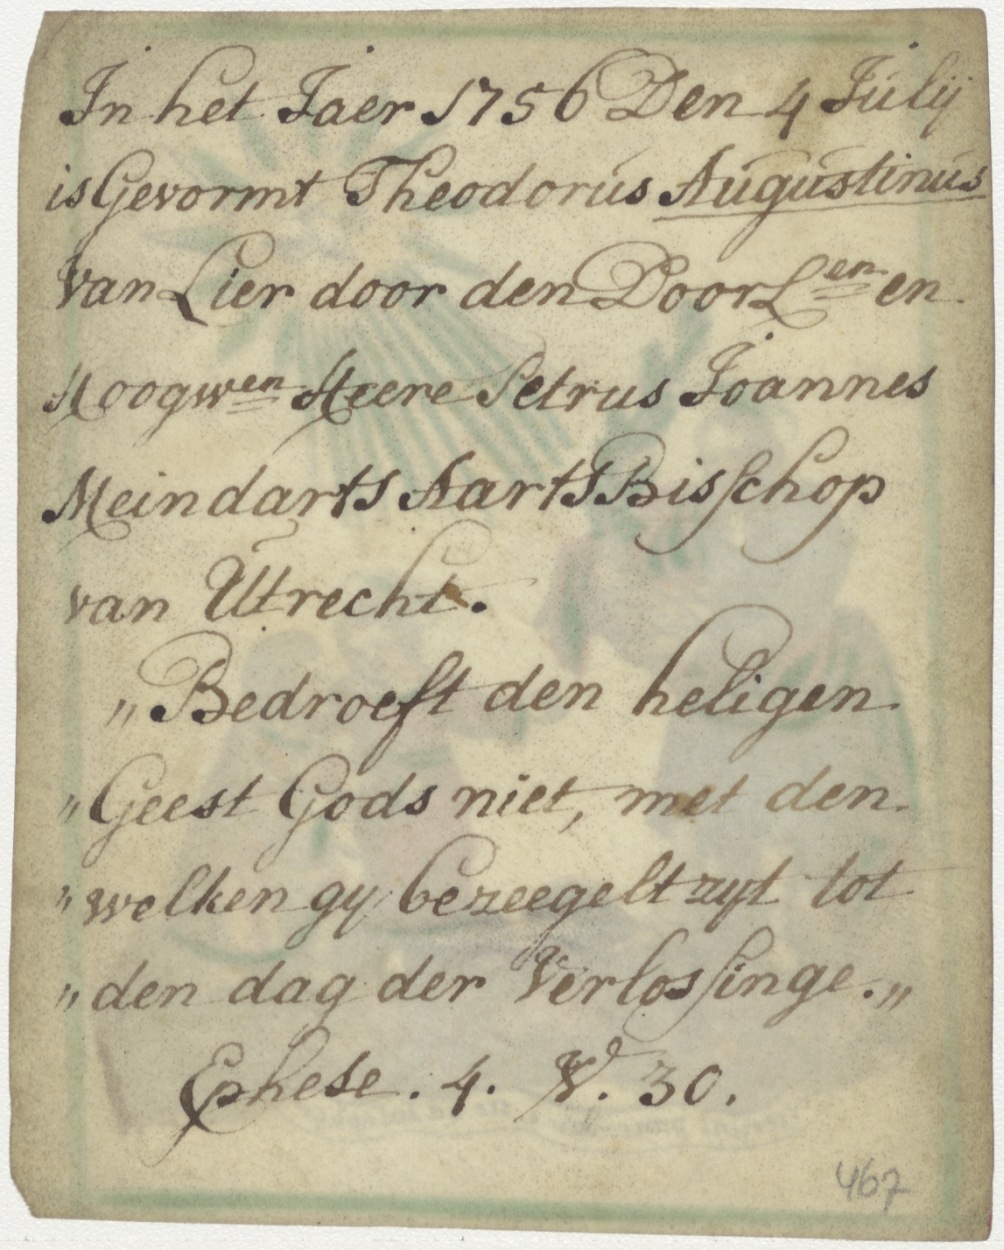 In het Iaer 1756 Den 4 Iulij
is Gevormt Theodorus Augustinus
Van Lier door den DoorLen en
Hoogwen Heere Petrus Ioannes
Meindarts AartsBisschop
van Utrecht.
„Bedroeft den heligen
„Geest Gods niet, met den
„welken gy bezeegelt zyt tot
„den dag der Verlossinge.„
Ephese. 4. V. 30.
467